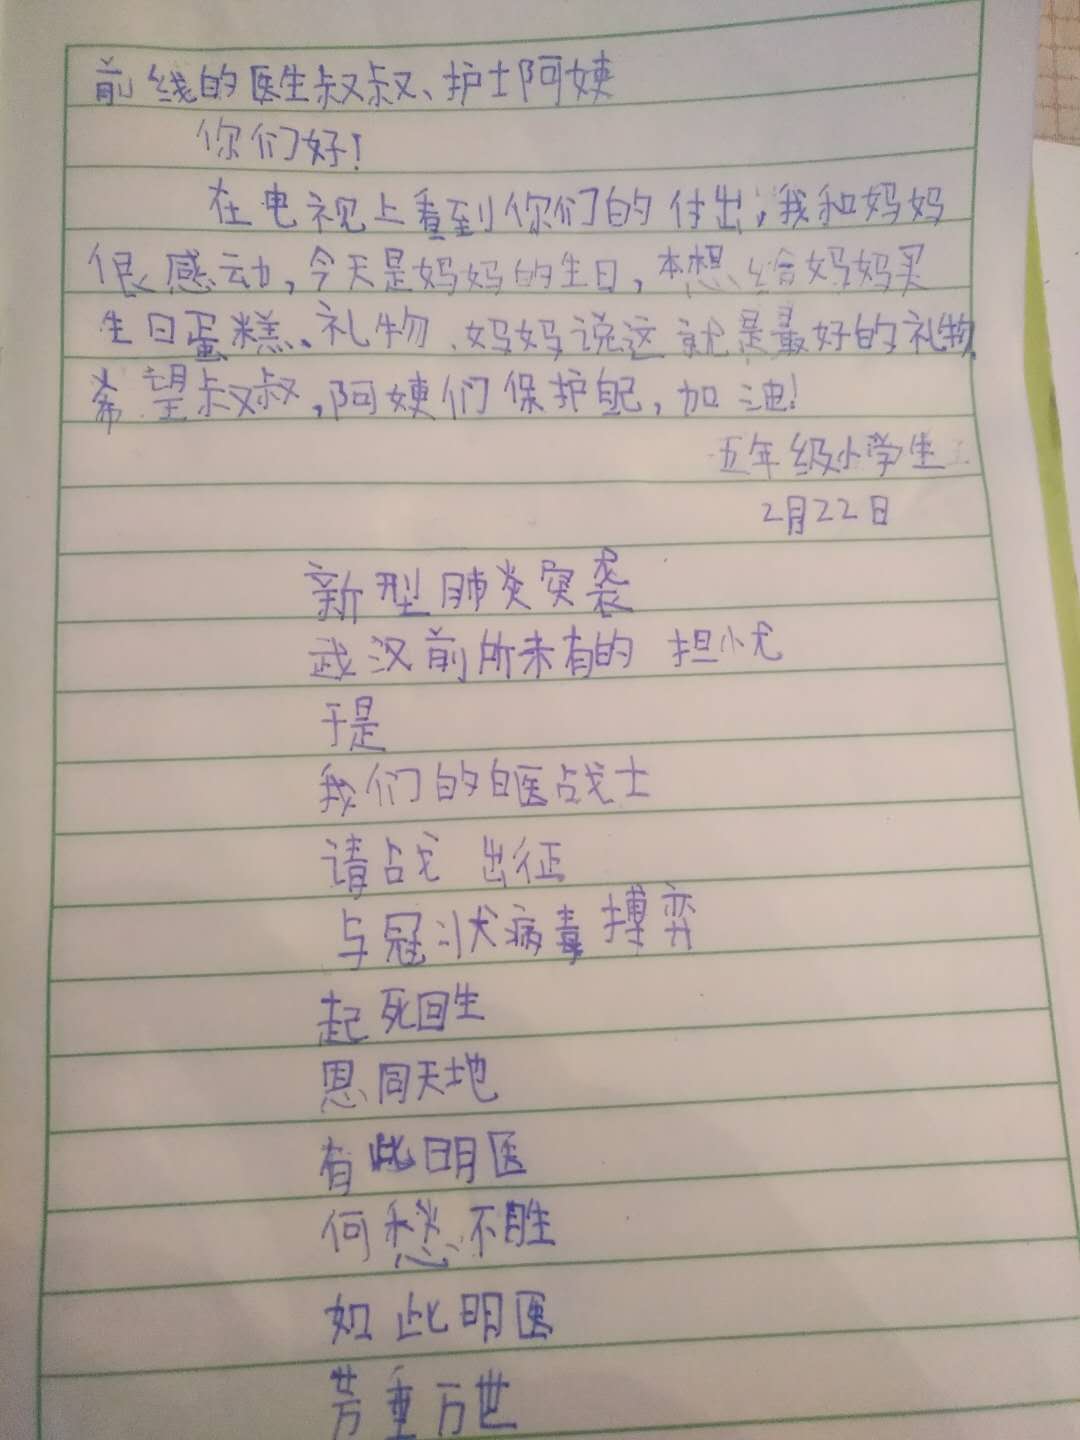 前线的医生叔叔、护士阿姨
你们好!
在电视上看到你们的付出,我和妈妈
很感动,今天是妈妈的生日,本想给妈妈买
生日蛋糕、礼物、妈妈说这就是最好的礼物
希望叔叔,阿姨们保护自己,加油!
五年级小学生
2月22日
新型肺炎突袭
武汉前所未有的 担忧
于是
我们的白医战士
请战 出征
与冠状病毒搏弈
起死回生
恩同天地
有此明医
何愁不胜
如此明医
芳垂万世